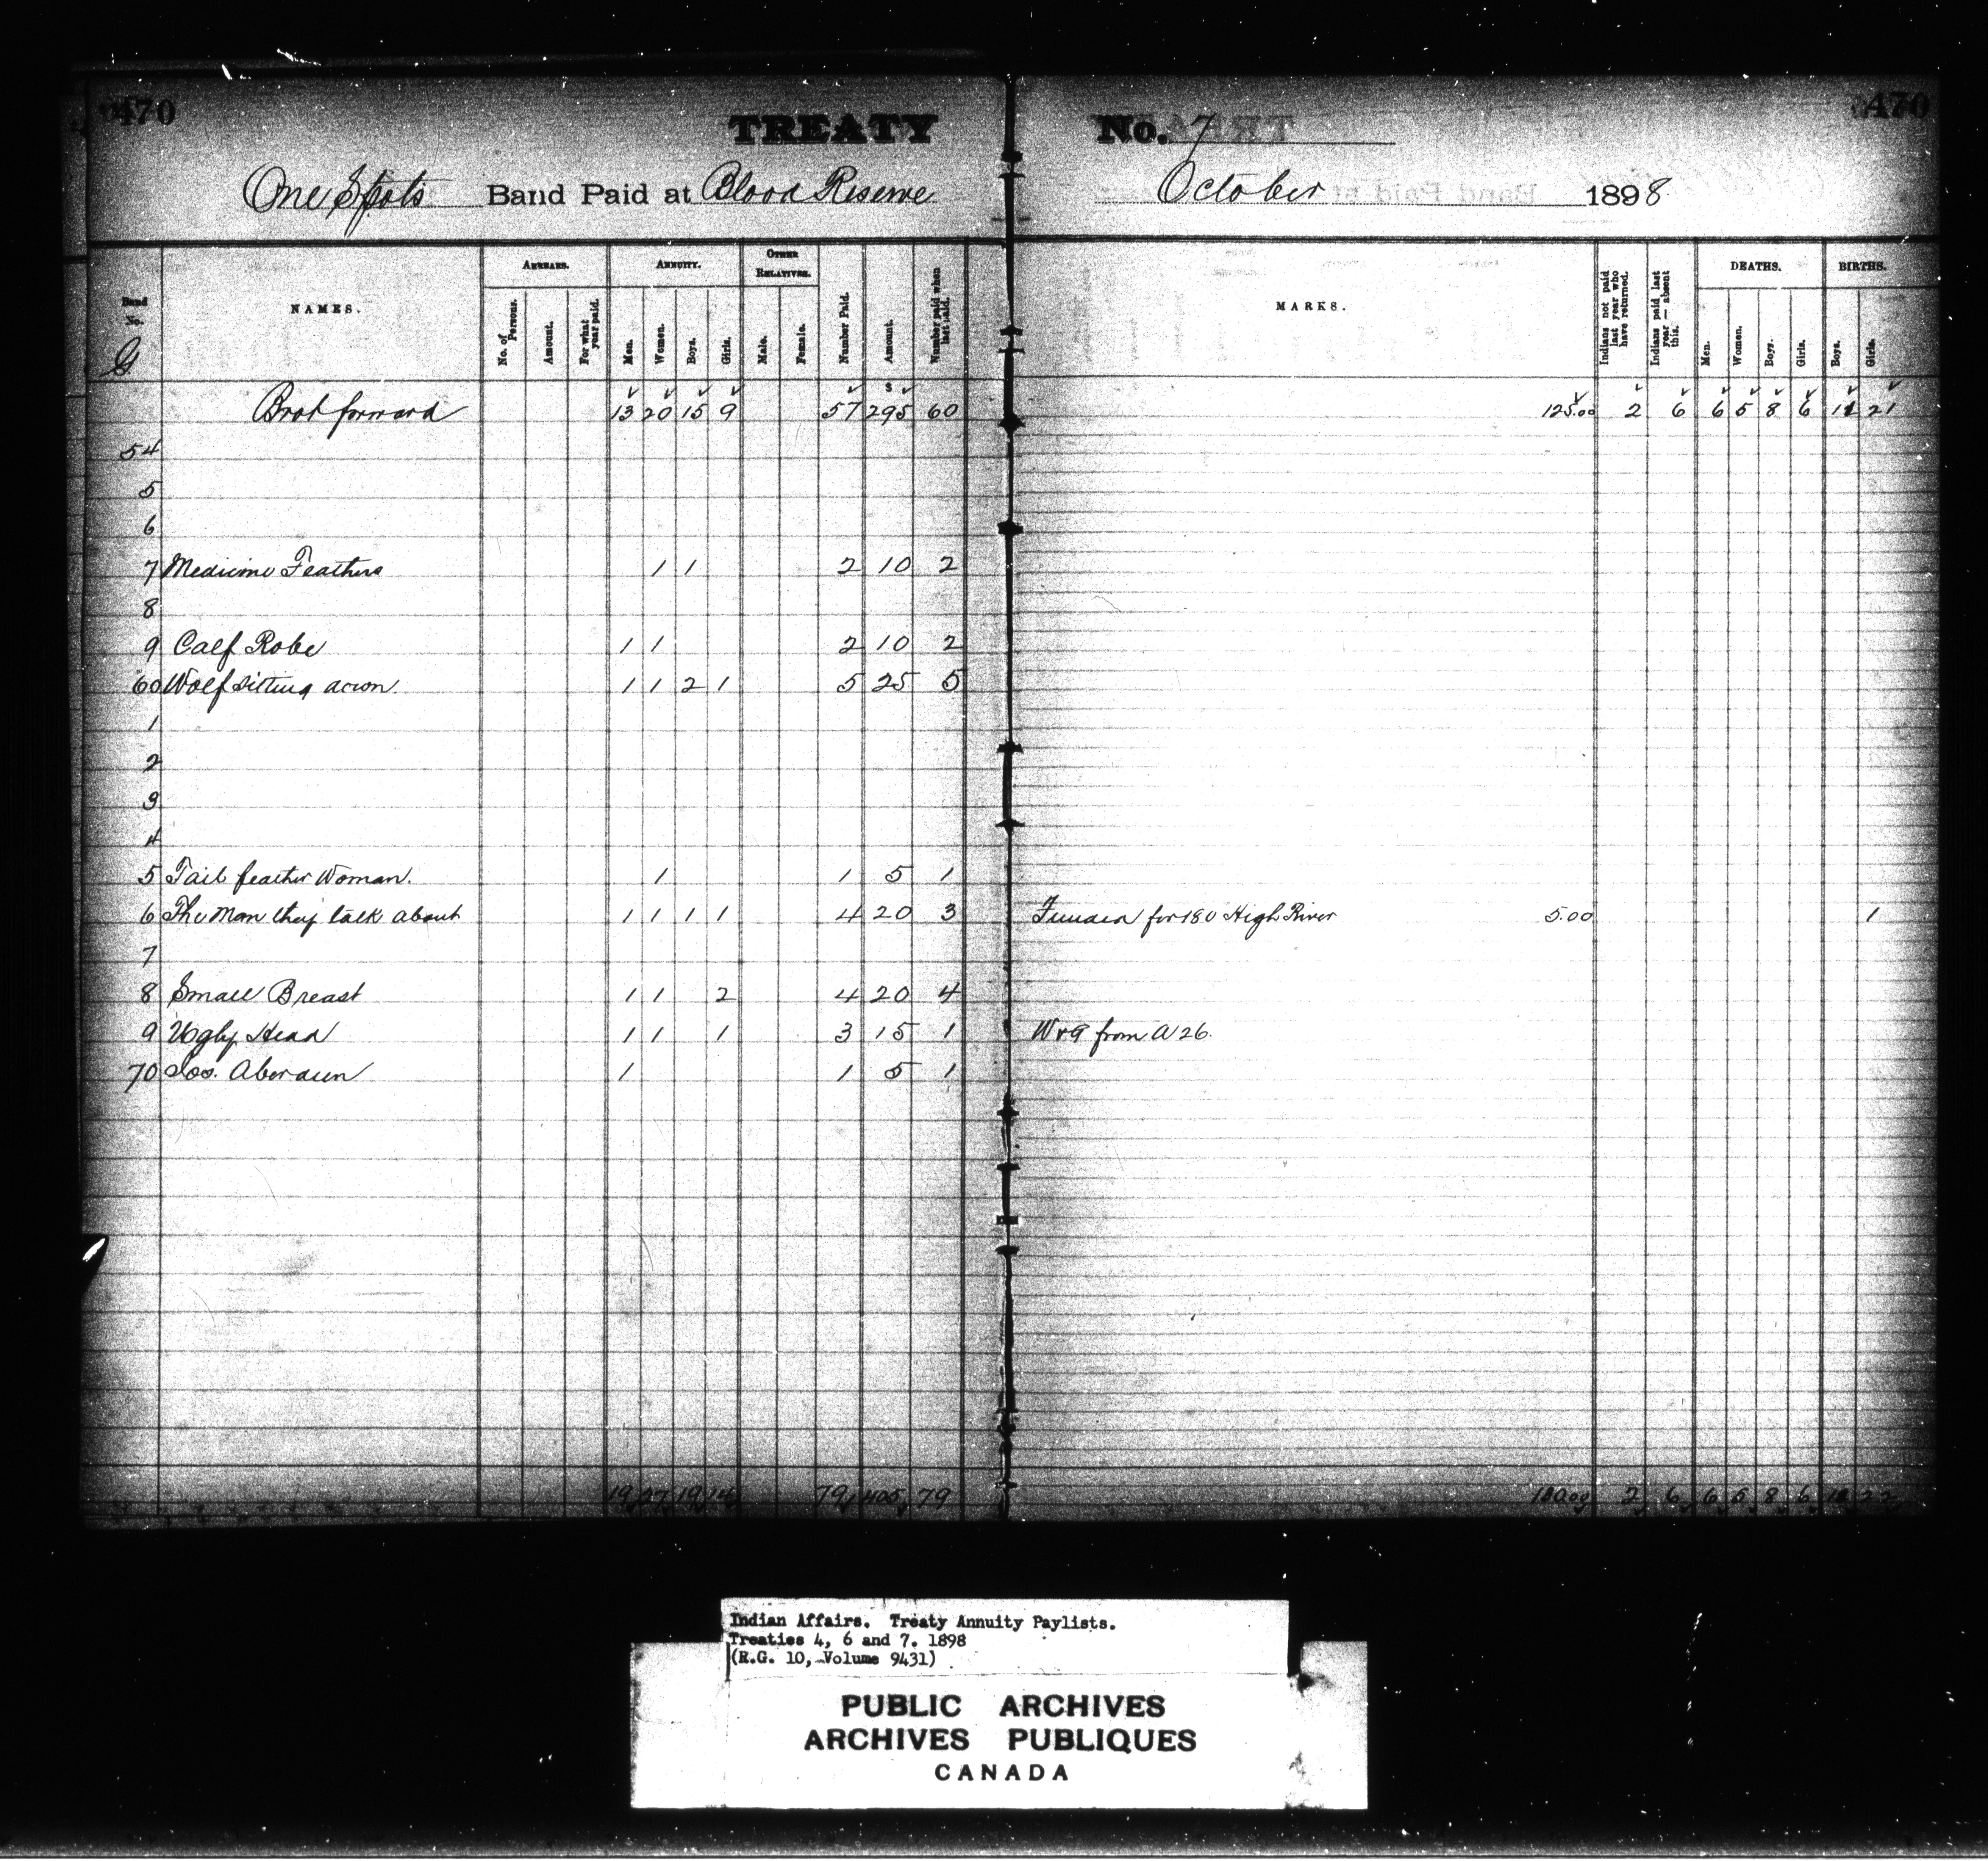 470 TREATY No. 7 470
One Spots Band Paid at Blood Reserve October 1898
Band No. NAMES. ARREARS. ANNUITY. OTHER RELATIVES. Number Paid. Amount. Number paid when last paid. MARKS. Indians not paid last year who have returned. Indians paid last year — absent this. DEATHS. BIRTHS.
No. of Persons. Amount. For what year paid. Men. Women. Boys. Girls. Male. Female. Men. Women. Boys. Girls. Boys. Girls.
G
$
Brot forward 13 20 15 9 57 295 60 125.00 2 6 6 5 8 6 21
54
5
6
7 Medicine Feathers 1 1 2 10 2
8
9 Calf Robe 1 1 2 10 2
60 Wolf sitting down. 1 1 2 1 5 25 5
1
2
3
4
5 Tail feather Woman. 1 1 5 1
6 The Man they talk about 1 1 1 1 4 20 3 for 180 High River 5.00 1
7
8 Small Breast 1 1 2 4 20 4
9 Ugly Head 1 1 1 3 15 1 W & G from A 26.
70 Jos. Aberdeen 1 1 5 1
19 27 19 14 79 405 79 2 6 6 5 8 6 22
Indian Affairs. Treaty Annuity Paylists.
Treaties 4, 6 and 7. 1898
(R.G. 10, Volume 9431)
PUBLIC ARCHIVES
ARCHIVES PUBLIQUES
CANADA